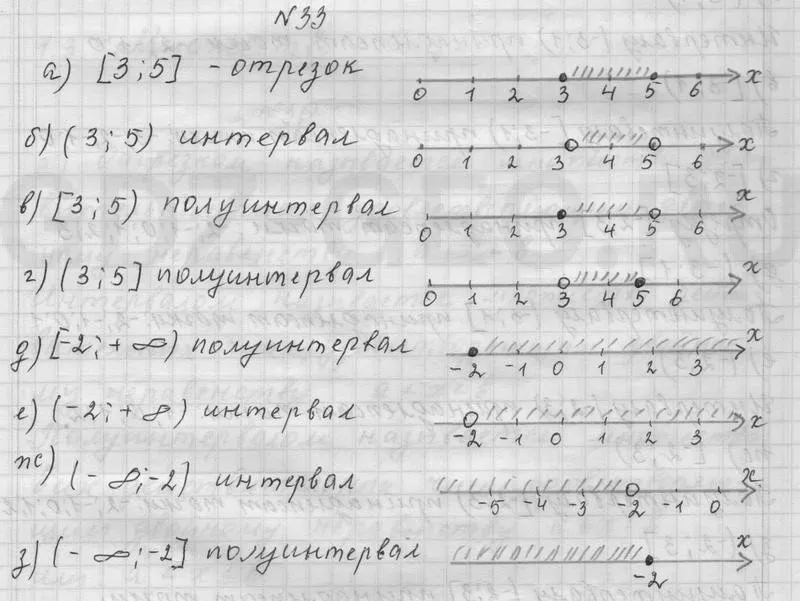 №33
а) [3;5] - отрезок 0 1 2 3 4 5 6 x
б) (3;5) интервал 0 1 2 3 4 5 6 x
в) [3;5) полуинтервал 0 1 2 3 4 5 6 x
г) (3;5] полуинтервал 0 1 2 3 4 5 6 x
д) [-2;+∞) полуинтервал -2 -1 0 1 2 3 x
е) (-2;+∞) интервал -2 -1 0 1 2 3 x
ж) (-∞;-2) интервал -5 -4 -3 -2 -1 0 x
з) (-∞;-2] полуинтервал -2 x